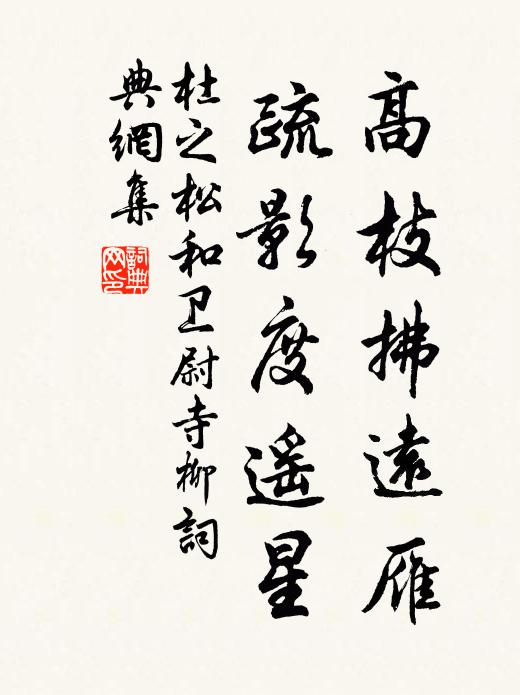 高枝拂遠雁
疏影度遥星
杜之松和卫尉寺柳詞
典網集
詞典
网印